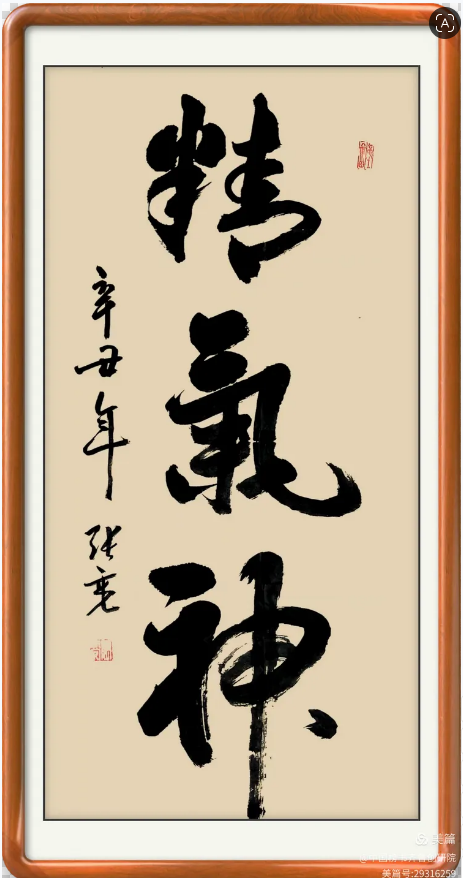 精
氣
神
辛丑年 张
美篇
美篇号:29316259